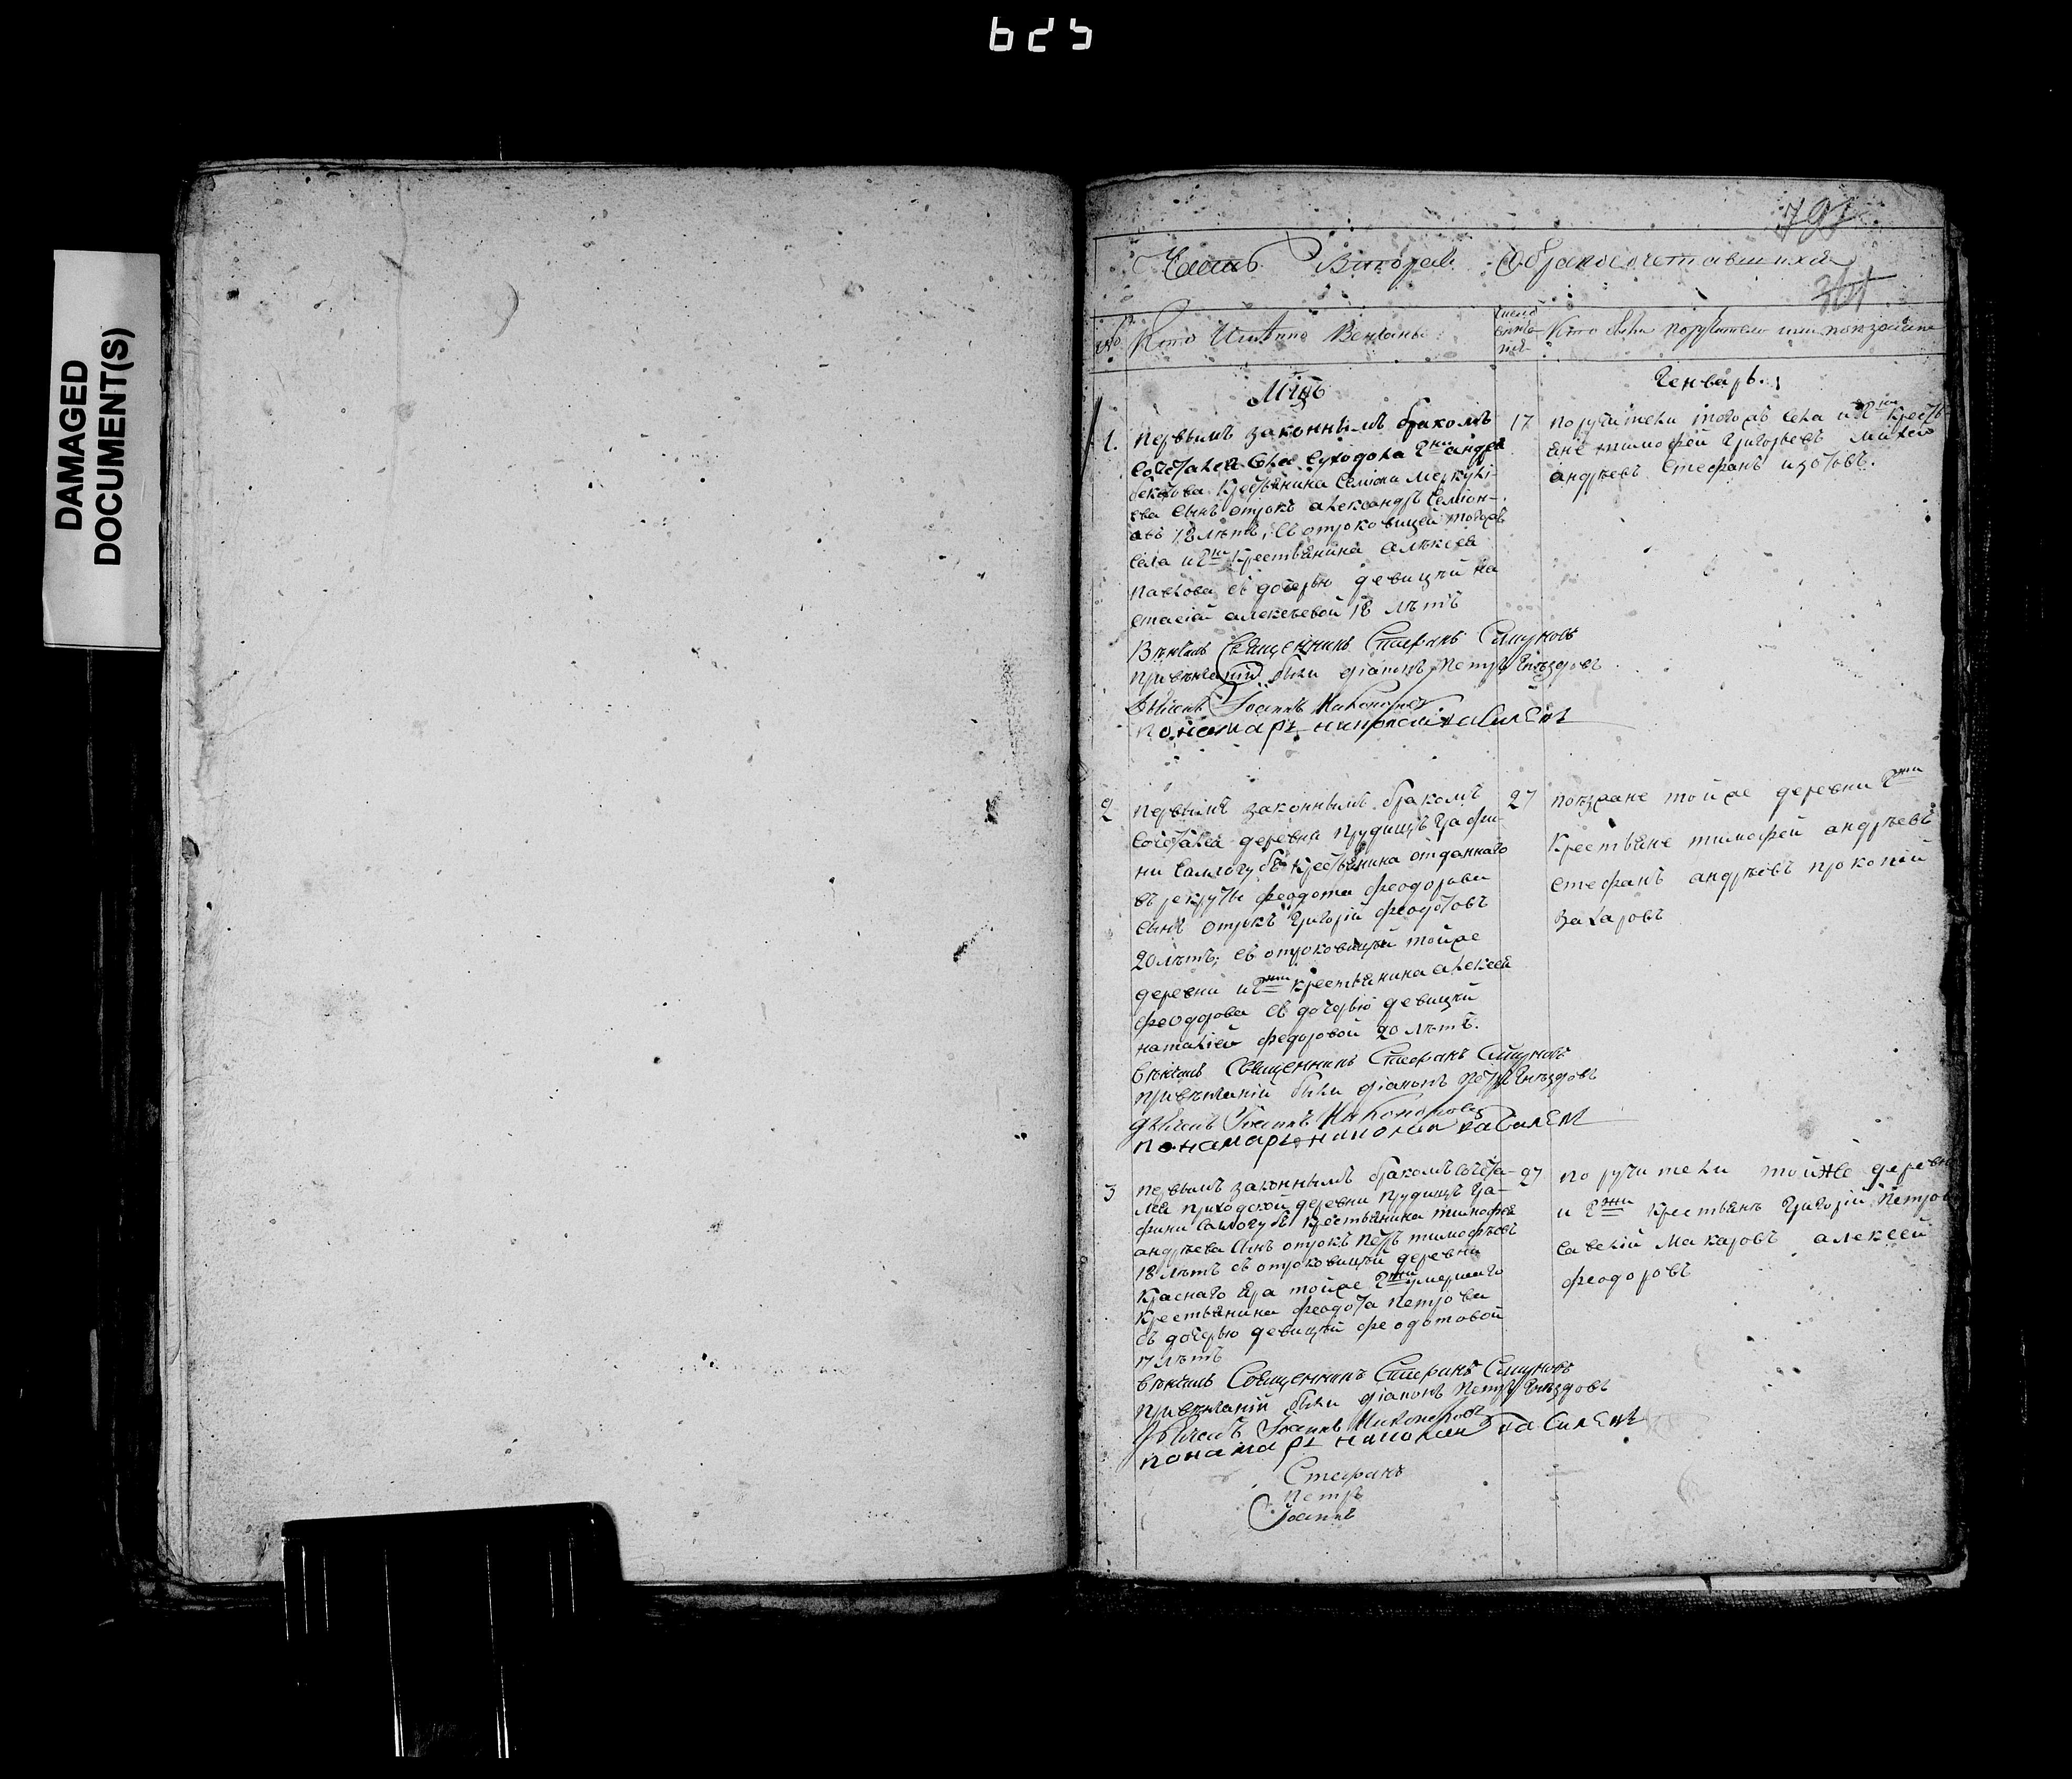 625
DAMAGED
DOCUMENT(S)
797
361
Часть Вторая О бракосочетавшихся
№ Кто Имянно Венчаны
Число
Кто были поручители или поезжане
Мцъ
Генварь.
1. первымъ законнымъ бракомъ
сочетался села суходола Гжи андрея
крестьянина Семиона Меркуль-
ева сынъ отрокъ александръ Семион-
овъ 18 лѣтъ, съ отроковицей тогожъ
села и Гжи крестьянина алексея
павлова съ дочерью девицей на
стасіей алексеевой 18 лѣтъ
Венчалъ Священникъ Стефанъ
при венчаніи были діаконъ Петръ Гнѣздовъ
дьячекъ Іоаннъ Никоноровъ
понамарь николай василевъ
17
поручители тогожъ села и Гжи кресть-
яне тимофей григорьевъ михей
андреевъ стефанъ изотовъ.
2 первымъ законнымъ бракомъ
сочетался деревни прудищъ Графи-
ни саллогубъ крестьянина отданнаго
въ рекруты феодота феодорова
сынъ отрокъ григорій феодотовъ
20 лѣтъ; съ отроковицей тойже
деревни и Гжи крестьянина алексея
феодорова съ дочерью девицей
наталіей федоровой 20 лѣтъ.
венчалъ Священникъ Стефанъ
при венчаніи были діаконъ Петръ Гнѣздовъ
дьячекъ Іоаннъ Никоноровъ
понамарь николай василевъ
27
поезжане тойже деревни Гжи
крестьяне тимофей андреевъ
стефанъ андреевъ прокопій
захаровъ
3 первымъ законнымъ бракомъ сочета-
лся приходской деревни прудищъ Гра-
фини саллогубъ крестьянина тимофея
андреева сынъ отрокъ петръ тимофеевъ
18 лѣтъ съ отроковицей деревни
краснаго яра тойже Гжи умершаго
крестьянина феодота петрова
съ дочерью девицей феодотовой
17 лѣтъ
венчалъ Священникъ Стефанъ
при венчаніи были діаконъ Петръ Гнѣздовъ
дьячекъ Іоаннъ Никоноровъ
понамарь николай василевъ
27
поручители тойже деревни
и Гжи крестьянъ григорій петровъ
савелій макаровъ алексей
феодоровъ
Стефанъ
петръ
Іоаннъ